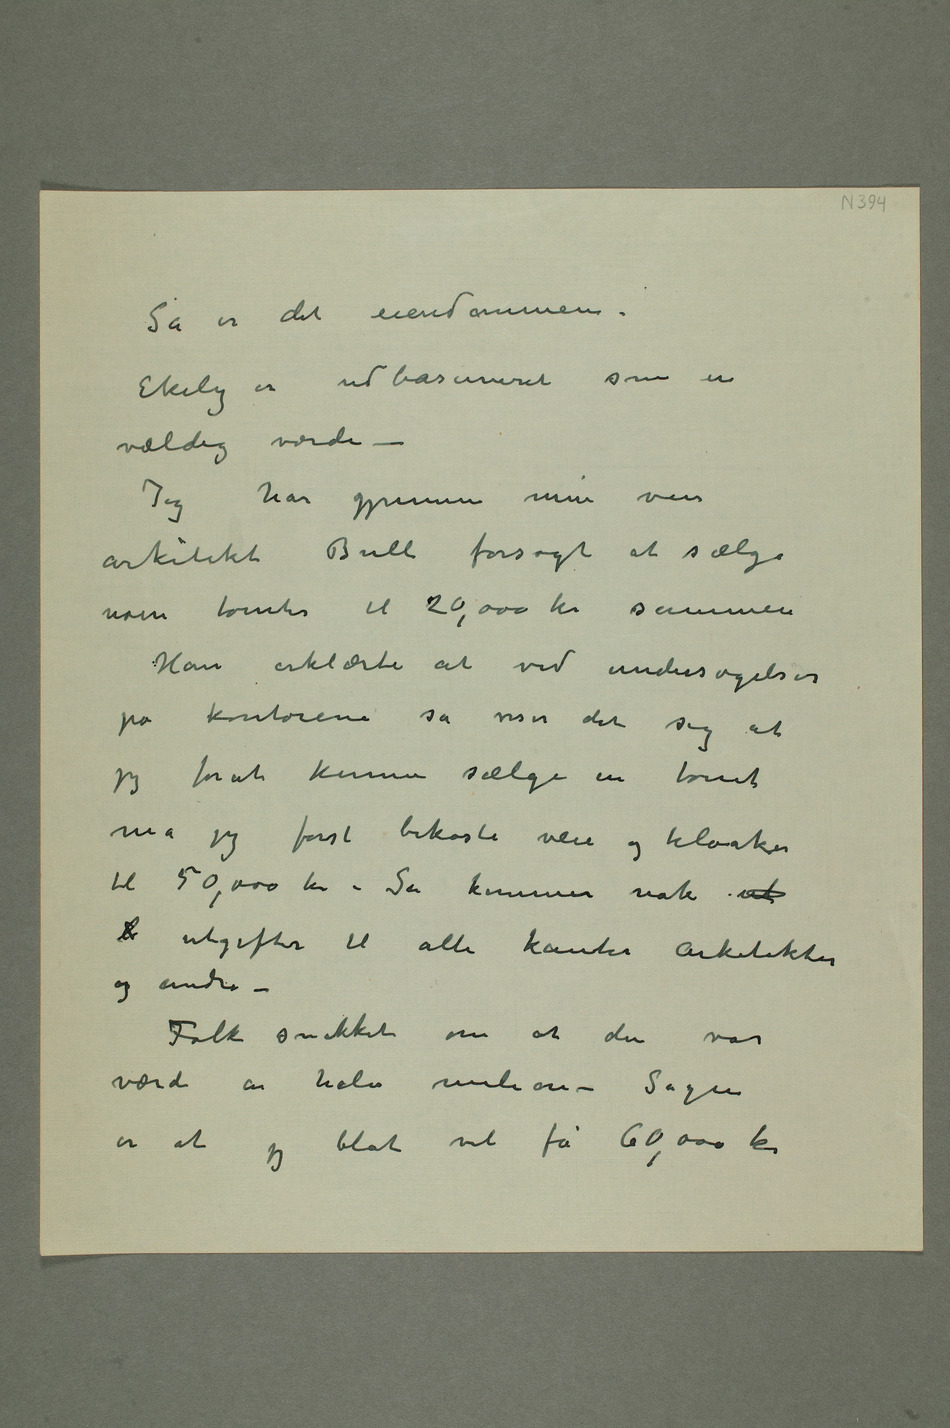 N 394
Så er det eiendommene.
Ekely er udbasuneret som en
vældig værdi –
Jeg har gjennem min ven
arkitekt Bull forsøgt at sælge
noen tomter til 20,000 kr sammen
Han erklærte at ved undersøgelser
på kontorene så viser det sig at
jeg forat kunne sælge en tomt
må jeg først bekoste veie og kloaker
til 50,000 kr – Så kommer nok ut
utgifter til alle kanter arkitekter
og andre –
Folk snakket om at den var
værd en halv milion – Sagen
er at jeg blot vil få 60,000 kr